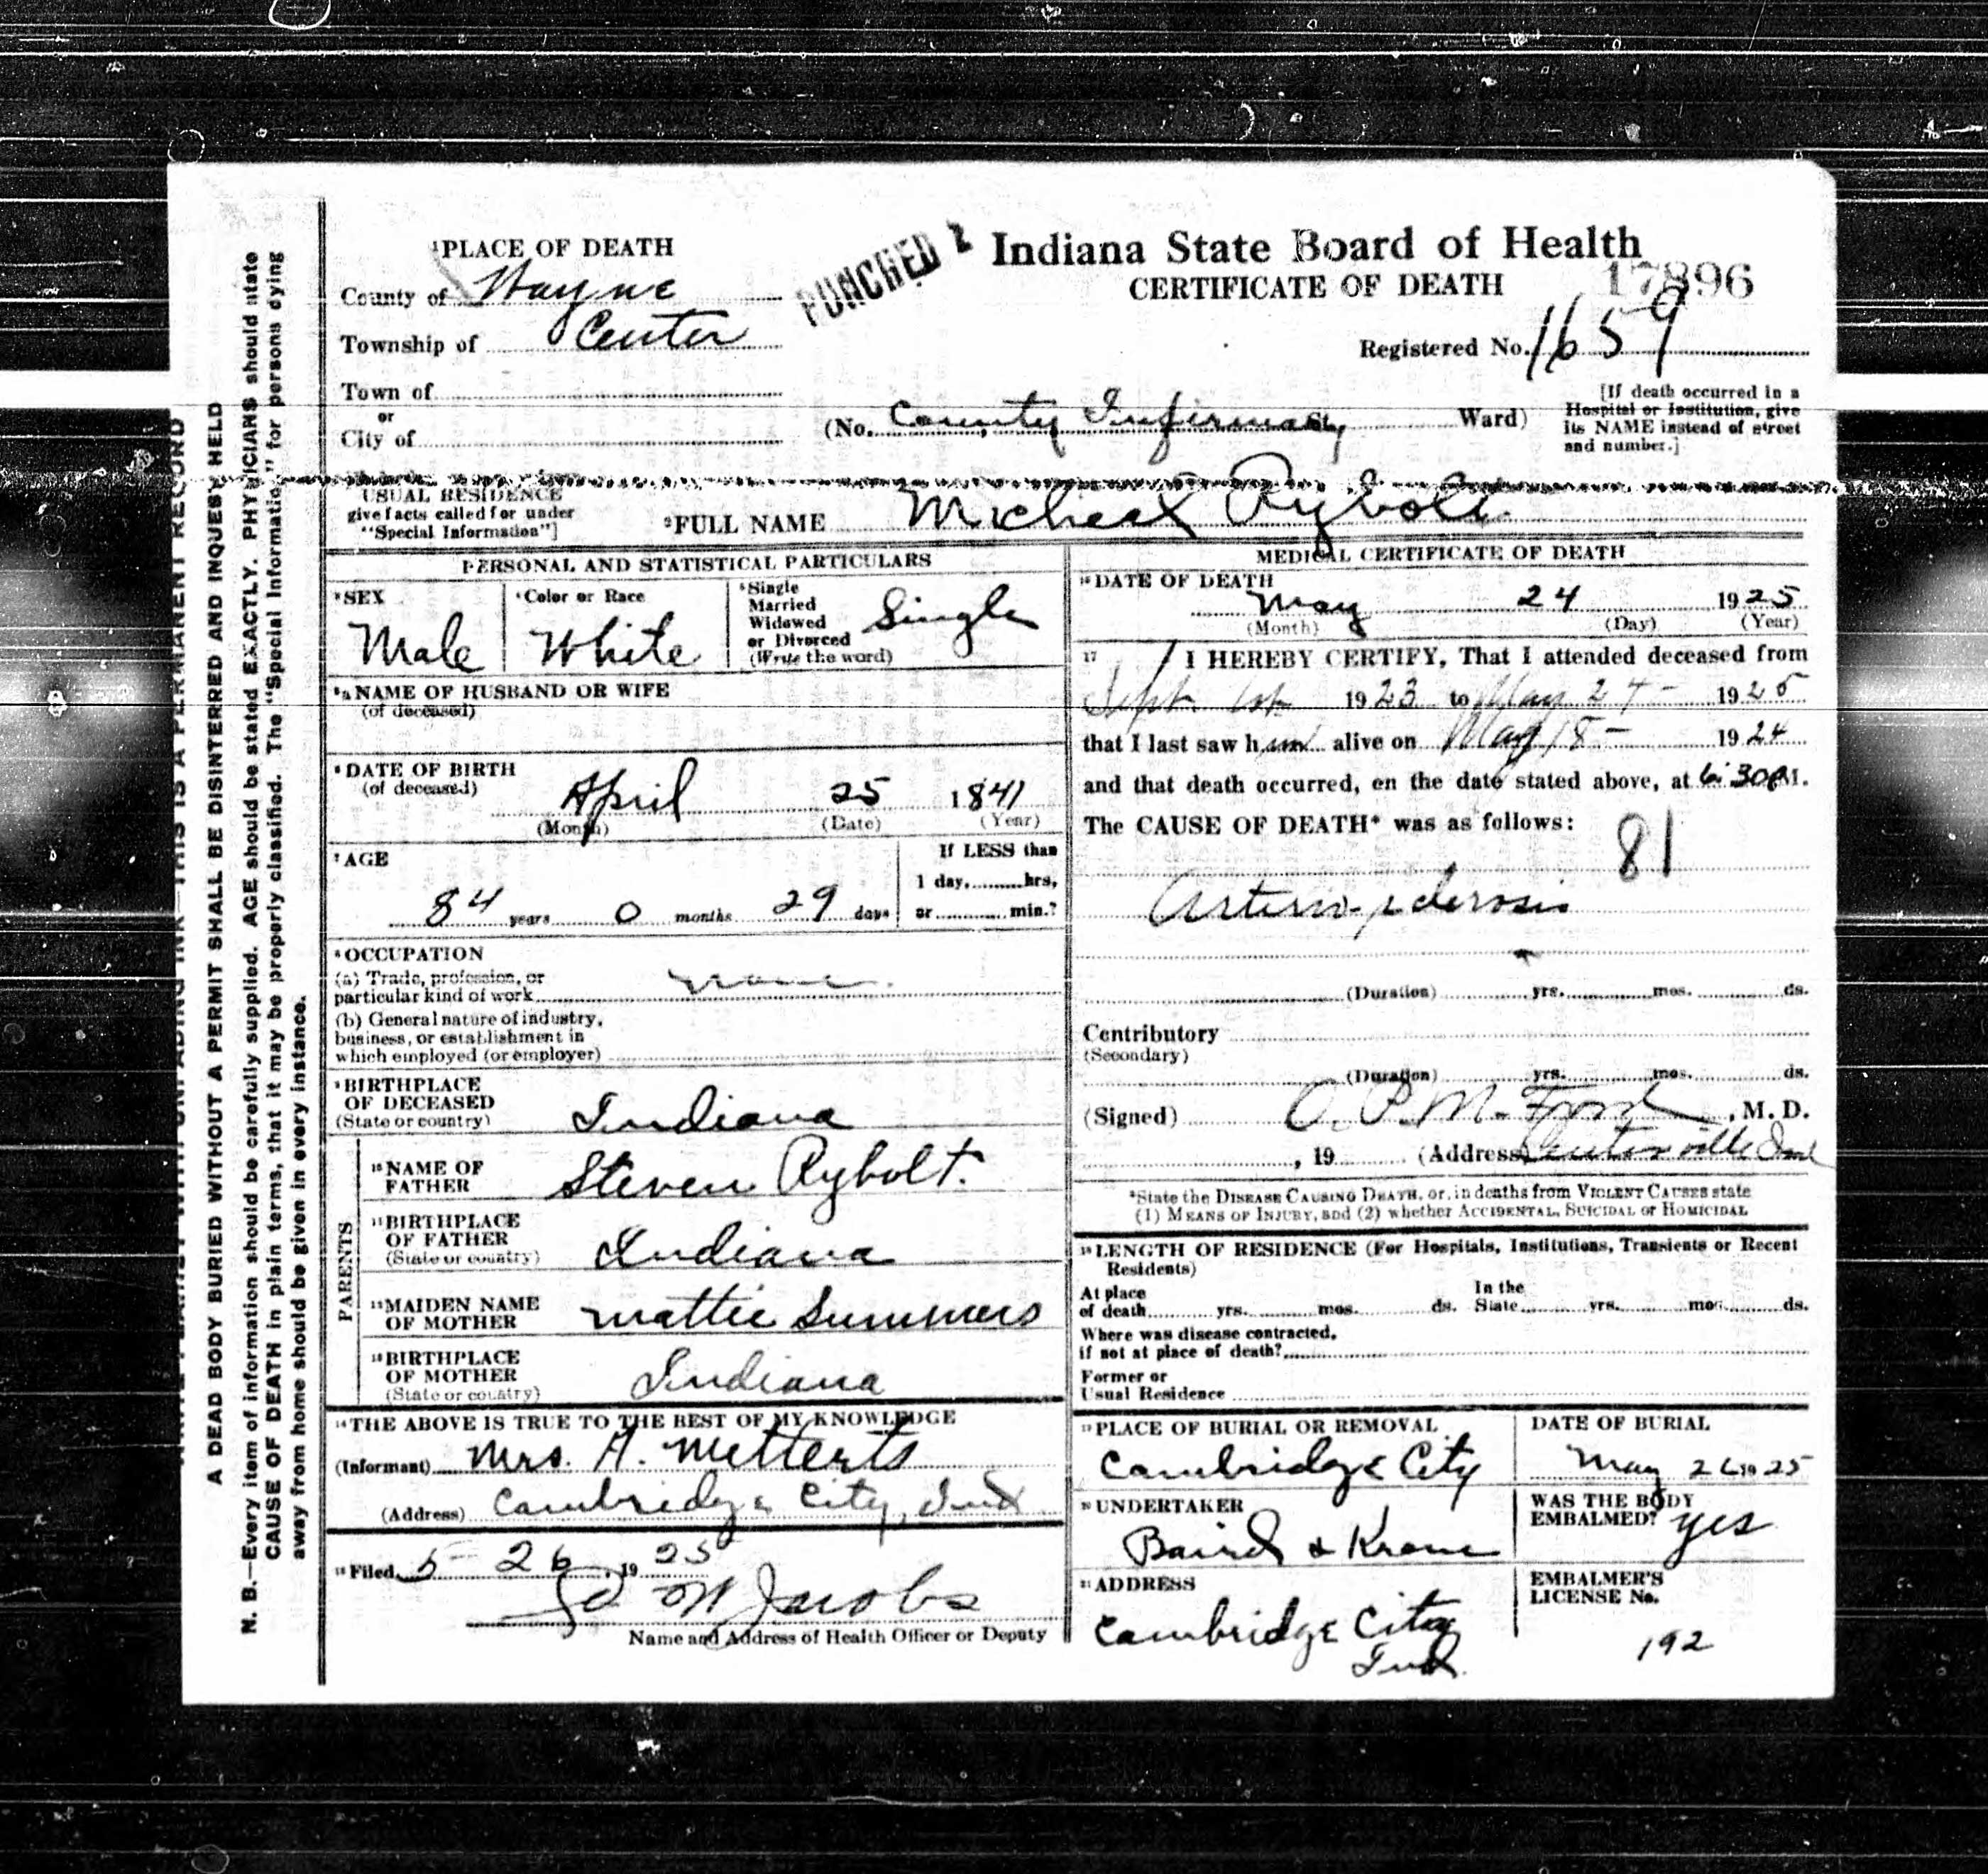 ¹PLACE OF DEATH
County of Wayne
Township of Center
Town of
or
City of
PUNCHED 2
Indiana State Board of Health
CERTIFICATE OF DEATH
17896
Registered No. 1659
(No. County Infirmary St., Ward)
[If death occurred in a
Hospital or Institution, give
its NAME instead of street
and number.]
USUAL RESIDENCE
give facts called for under
"Special Information"]
²FULL NAME Micheal Rybolt
PERSONAL AND STATISTICAL PARTICULARS
³SEX
Male
⁴Color or Race
White
⁵Single
Married
Widowed
or Divorced
(Write the word)
Single
⁵ᵃNAME OF HUSBAND OR WIFE
(of deceased)
⁶DATE OF BIRTH
(of deceased)
April 25 1841
(Month) (Date) (Year)
⁷AGE
84 years 0 months 29 days
If LESS than
1 day, hrs,
or min.?
⁸OCCUPATION
(a) Trade, profession, or
particular kind of work none
(b) General nature of industry,
business, or establishment in
which employed (or employer)
⁹BIRTHPLACE
OF DECEASED
(State or country)
Indiana
PARENTS
¹⁰NAME OF
FATHER
Steven Rybolt.
¹¹BIRTHPLACE
OF FATHER
(State or country)
Indiana
¹²MAIDEN NAME
OF MOTHER
Mattie Summers
¹³BIRTHPLACE
OF MOTHER
(State or country)
Indiana
¹⁴THE ABOVE IS TRUE TO THE BEST OF MY KNOWLEDGE
(Informant) Mrs. A. Metterts
(Address) Cambridge City, Ind
¹⁵Filed 5 26, 1925
Jacobs
Name and Address of Health Officer or Deputy
MEDICAL CERTIFICATE OF DEATH
¹⁶DATE OF DEATH
May 24 1925
(Month) (Day) (Year)
17 I HEREBY CERTIFY, That I attended deceased from
Sept. 1st 1923 to May 24 - 1925
that I last saw him alive on May 18 - 1924
and that death occurred, on the date stated above, at 6:30 P.M.
The CAUSE OF DEATH* was as follows:
81
Arterio-sclerosis
(Duration) yrs. mos. ds.
Contributory
(Secondary)
(Duration) yrs. mos. ds.
(Signed) O. P. M. Ford, M. D.
, 19 (Address) Centerville Ind
*State the DISEASE CAUSING DEATH, or, in deaths from VIOLENT CAUSES state
(1) MEANS OF INJURY, and (2) whether ACCIDENTAL, SUICIDAL or HOMICIDAL
¹⁸LENGTH OF RESIDENCE (For Hospitals, Institutions, Transients or Recent
Residents)
At place
of death yrs. mos. ds.
In the
State yrs. mos. ds.
Where was disease contracted,
if not at place of death?
Former or
Usual Residence
¹⁹PLACE OF BURIAL OR REMOVAL
Cambridge City
DATE OF BURIAL
May 26 1925
²⁰UNDERTAKER
Baird & Krone
WAS THE BODY
EMBALMED? yes
²¹ADDRESS
Cambridge City
Ind.
EMBALMER'S
LICENSE No.
192
A DEAD BODY BURIED WITHOUT A PERMIT SHALL BE DISINTERRED AND INQUEST HELD
N. B.—Every item of information should be carefully supplied. AGE should be stated EXACTLY. PHYSICIANS should state
CAUSE OF DEATH in plain terms, that it may be properly classified. The "Special Information" for persons dying
away from home should be given in every instance.